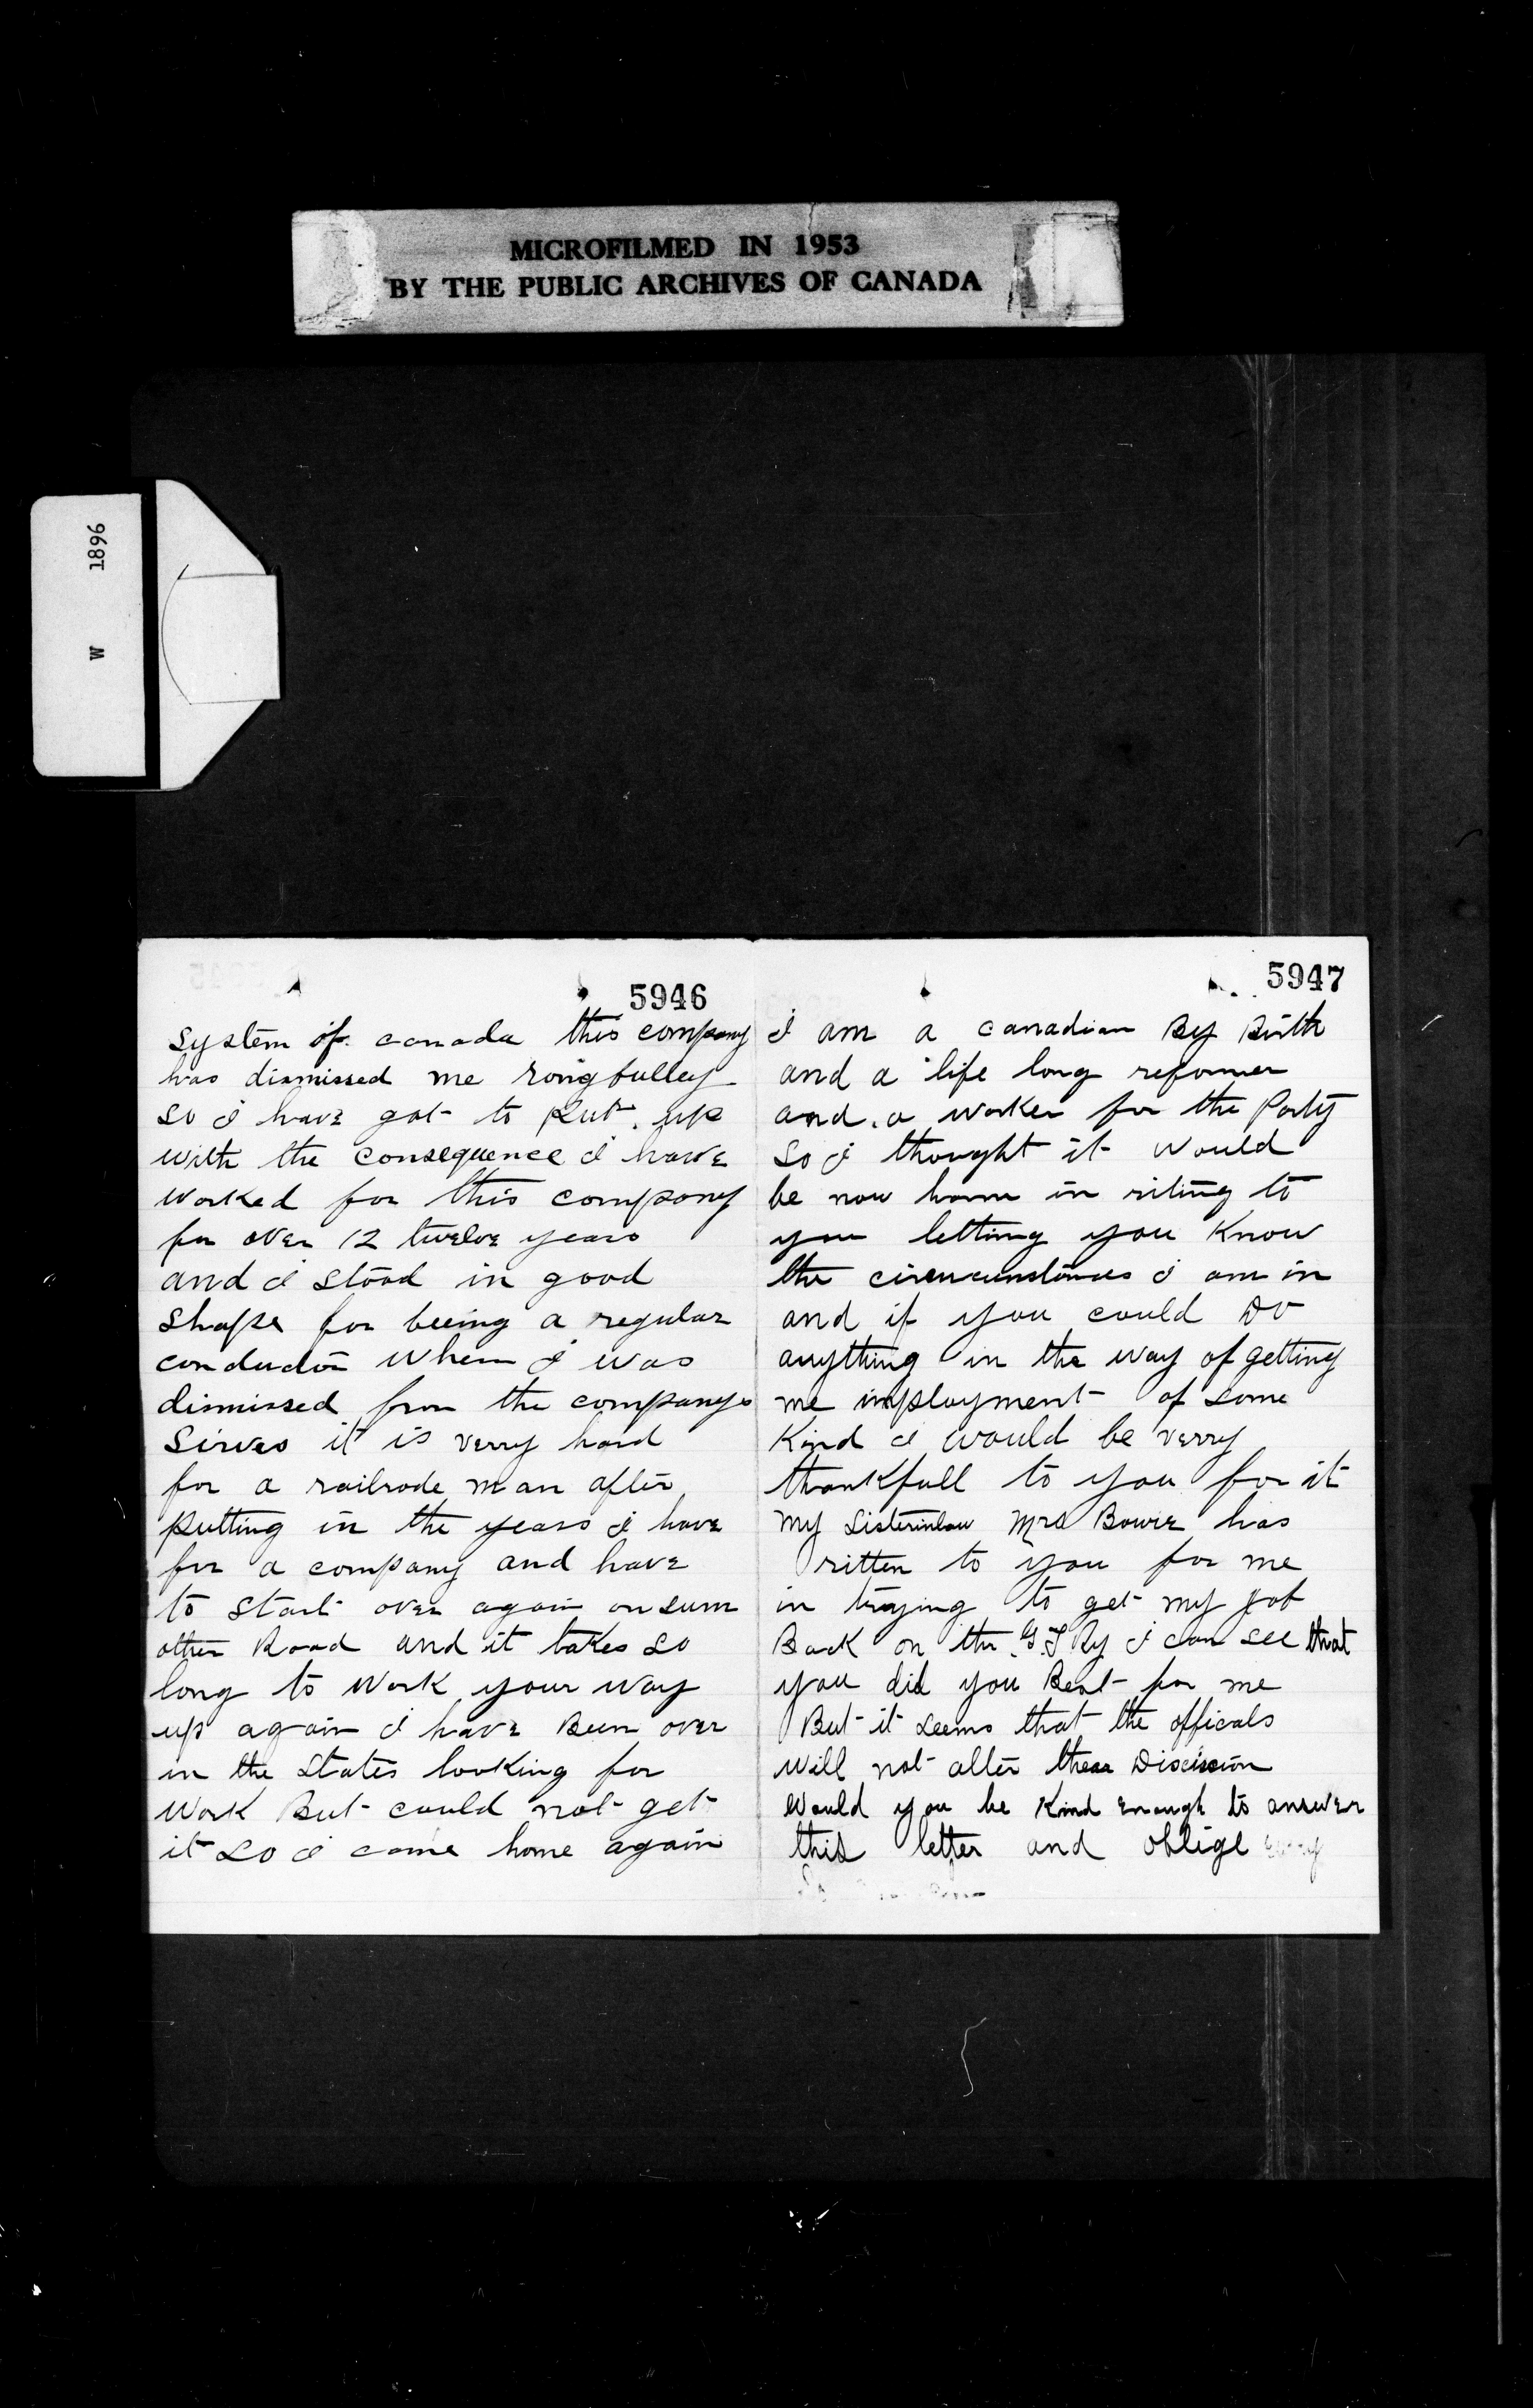 MICROFILMED IN 1953
BY THE PUBLIC ARCHIVES OF CANADA
W 1896
5946
system of canada this company
has dismissed me rongfulley
so I have got to Put up
with the consequence I have
worked for this company
for over 12 twelve years
and I stood in good
shape for beeing a regular
conductor when I was
dismissed from the companys
Sirves it is verry hard
for a railrode man after
Putting in the years I have
for a company and have
to start over again on sum
other Road and it takes so
long to work your way
up again I have Been over
in the States looking for
work But could not get
it so I come home again
5947
I am a canadian By Birth
and a life long reformer
and a worker for the Party
so I thought it would
be now harm in riting to
you letting you Know
the circumcumstances I am in
and if you could Do
anything in the way of getting
me imployment of some
Kind I would be verry
thankfull to you for it
my Sisterinlaw Mrs Bowie has
ritten to you for me
in trying to get my job
Back on the G.T Ry I can see that
you did you Best for me
But it seems that the officals
will not alter thear Discission
would you be Kind enough to answer
this letter and oblige